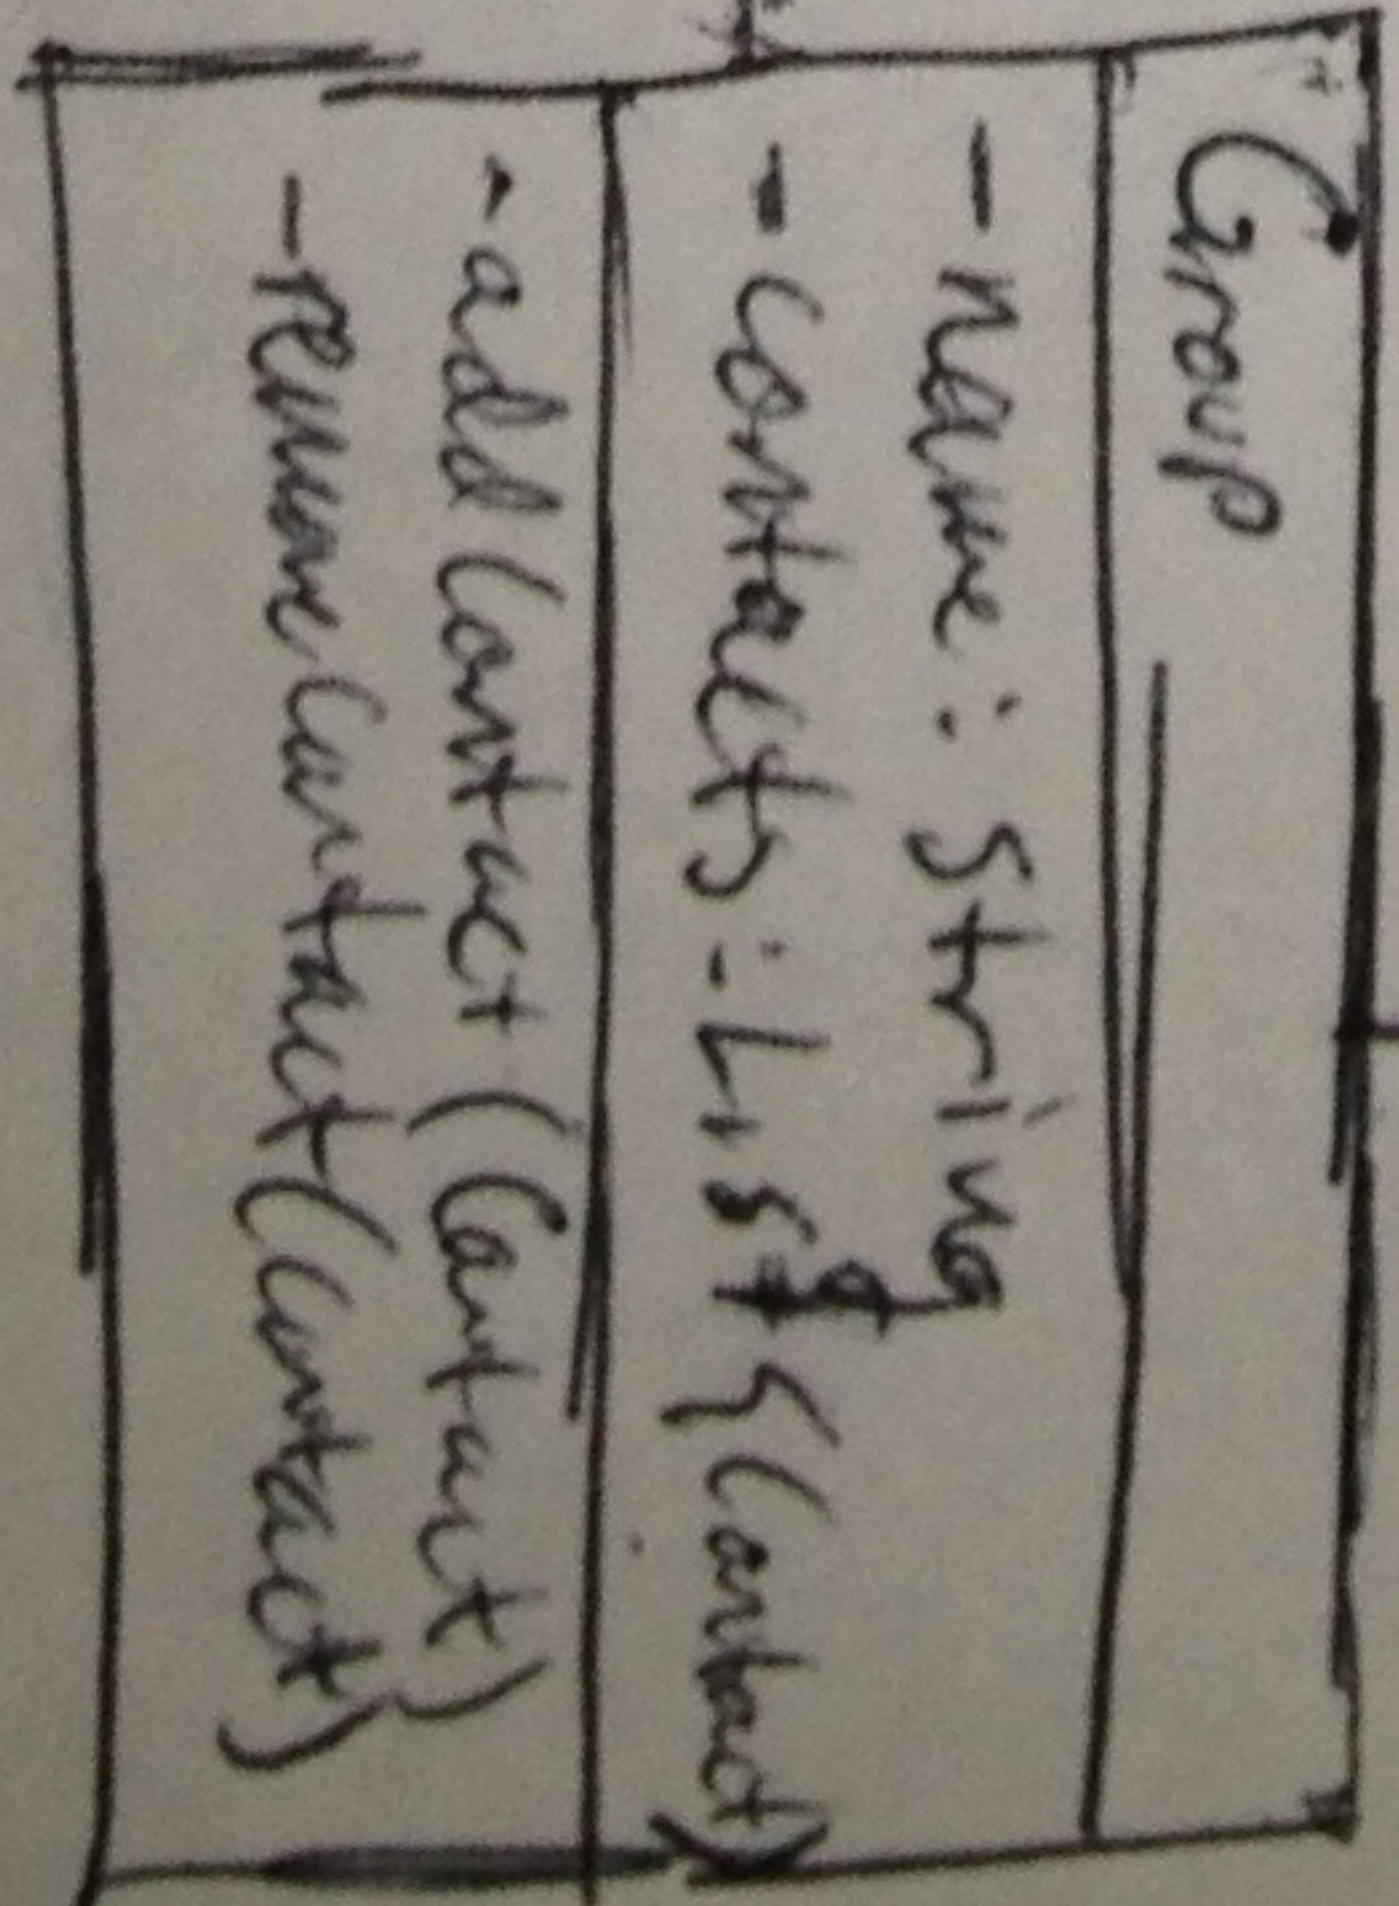 Group
- name : String
- contacts : List<Contact>
- addContact (Contact)
- removeContact(Contact)